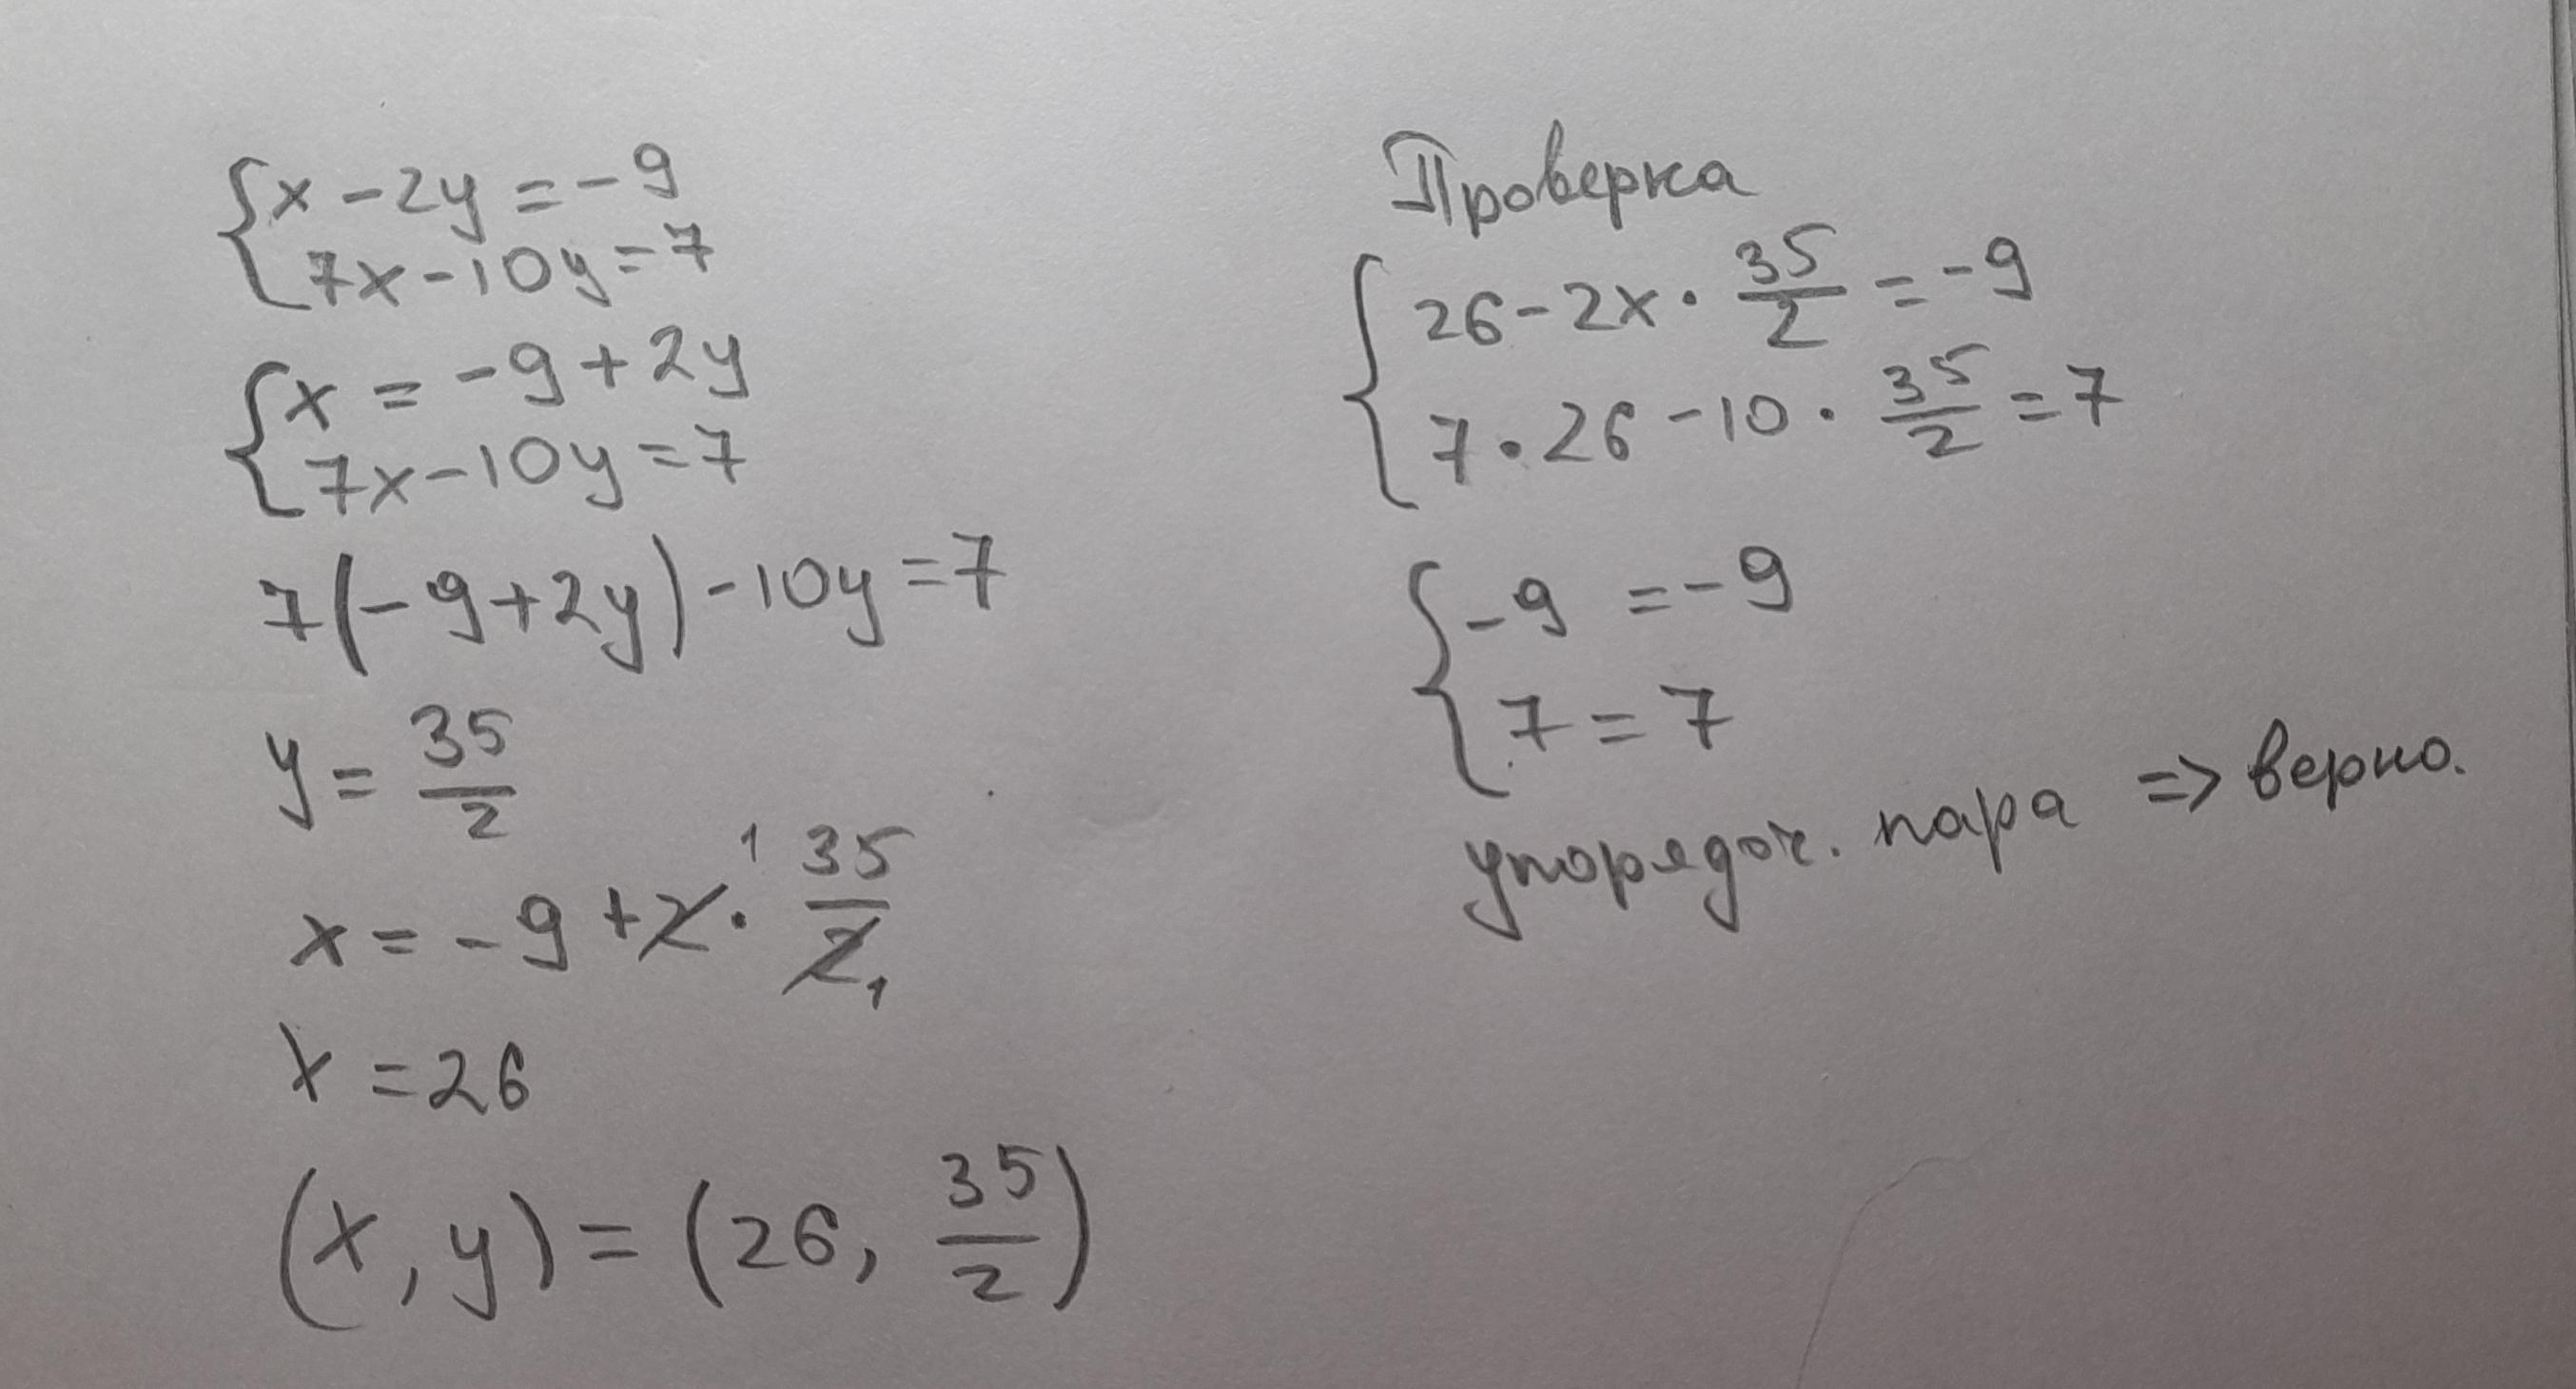 { x - 2y = -9
7x - 10y = 7
{ x = -9 + 2y
7x - 10y = 7
7(-9 + 2y) - 10y = 7
y = 35/2
x = -9 + 2 · 1 35/2 1
x = 26
(x, y) = (26, 35/2)
Проверка
{ 26 - 2x · 35/2 = -9
7 · 26 - 10 · 35/2 = 7
{ -9 = -9
7 = 7
упорядоч. пара => верно.